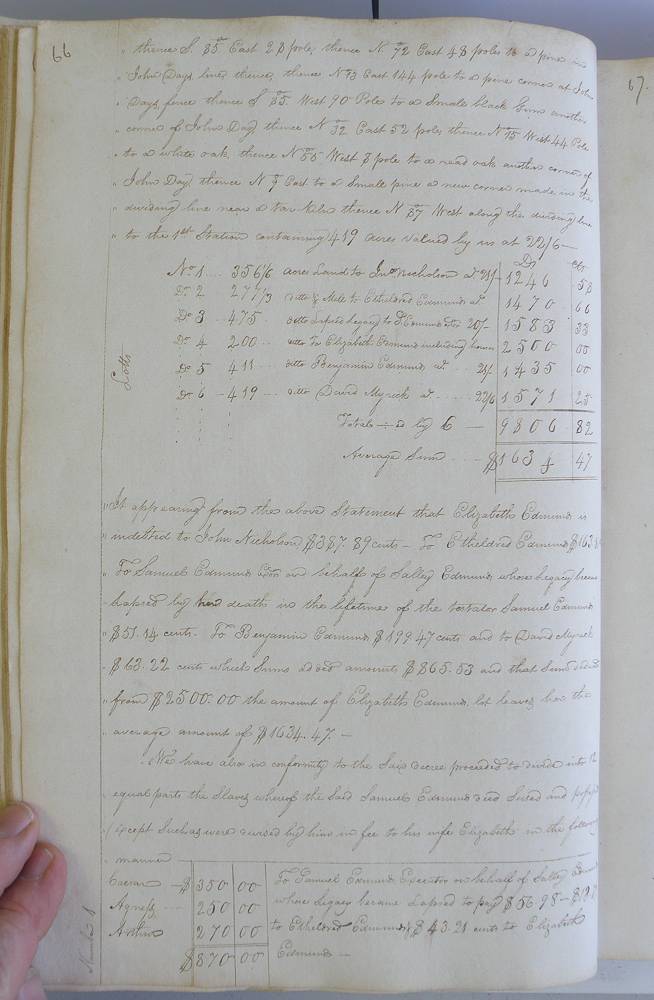 66
thence S. 85° East 28 pole, thence N. 72 East 48 poles to a pine in
John Days line, thence, thence N 73 East 144 pole to a pine corner at John
Days fence thence S 85. West 90 Poles to a Small black Gum another
corner of John Day, thence N 32 East 52 poles thence N 15 West 44 Pole
to a white oak, thence N 55 West 8 pole to a read oak another corner of
John Day, thence N 9 East to a Small pine a new corner made in the
dividing line near a tar kiln thence N 87 West along the dividing line
to the 1st Station containing 419 acres valued by us at 22/6 —
Ds cts
No 1 .... 356 1/6 acres Land to Jno. Nicholson at 21/- 1246 58
Do 2 277 1/3 ditto & Mill to Etheldred Edmunds at 1470 66
Do 3 - 475 - ditto Lapsed Legacy to S Edmunds 20/- 1583 33
Do 4 200 ditto To Elizabeth Edmunds including 2500 00
Lotts
Do 5 411 ditto Benjamin Edmunds at 21/ 1435 00
Do 6 - 419 ditto David Myrick at 22/6 1571 25
Total ÷ d by 6 — 9806 82
Average Sum — $ 1634 47
It appearing from the above Statement that Elizabeth Edmunds is
indebted to John Nicholson $387.89 cents — To Etheldred Edmunds $163.81
To Samuel Edmunds Exor on behalf of Salley Edmunds whose legacy became
lapsed by her death in the lifetime of the testator Samuel Edmunds
$51.14 cents. To Benjamin Edmunds $199.47 cents and to David Myrick
$63.22 cents which Sums added amounts $865.53 and that Sum deducted
from $2500.00 the amount of Elizabeth Edmunds lot leaves her the
average amount of $1634.47. —
We have also in conformity to the Said decree proceeded to divide into 12
equal parts the Slaves whereof the Said Samuel Edmunds died Seised and
Except Such as were devised by him in fee to his wife Elizabeth in the following
manner
Caesar — $ 350 00 To Samuel Edmunds Executor on behalf of Salley Edmunds
Agness 250 00 whose Legacy became Lapsed to pay $56.98 —
Arthur 270 00 to Etheldred Edmunds & $43.21 cents to Elizabeth
$870 00 Edmunds —
Number 8
67.